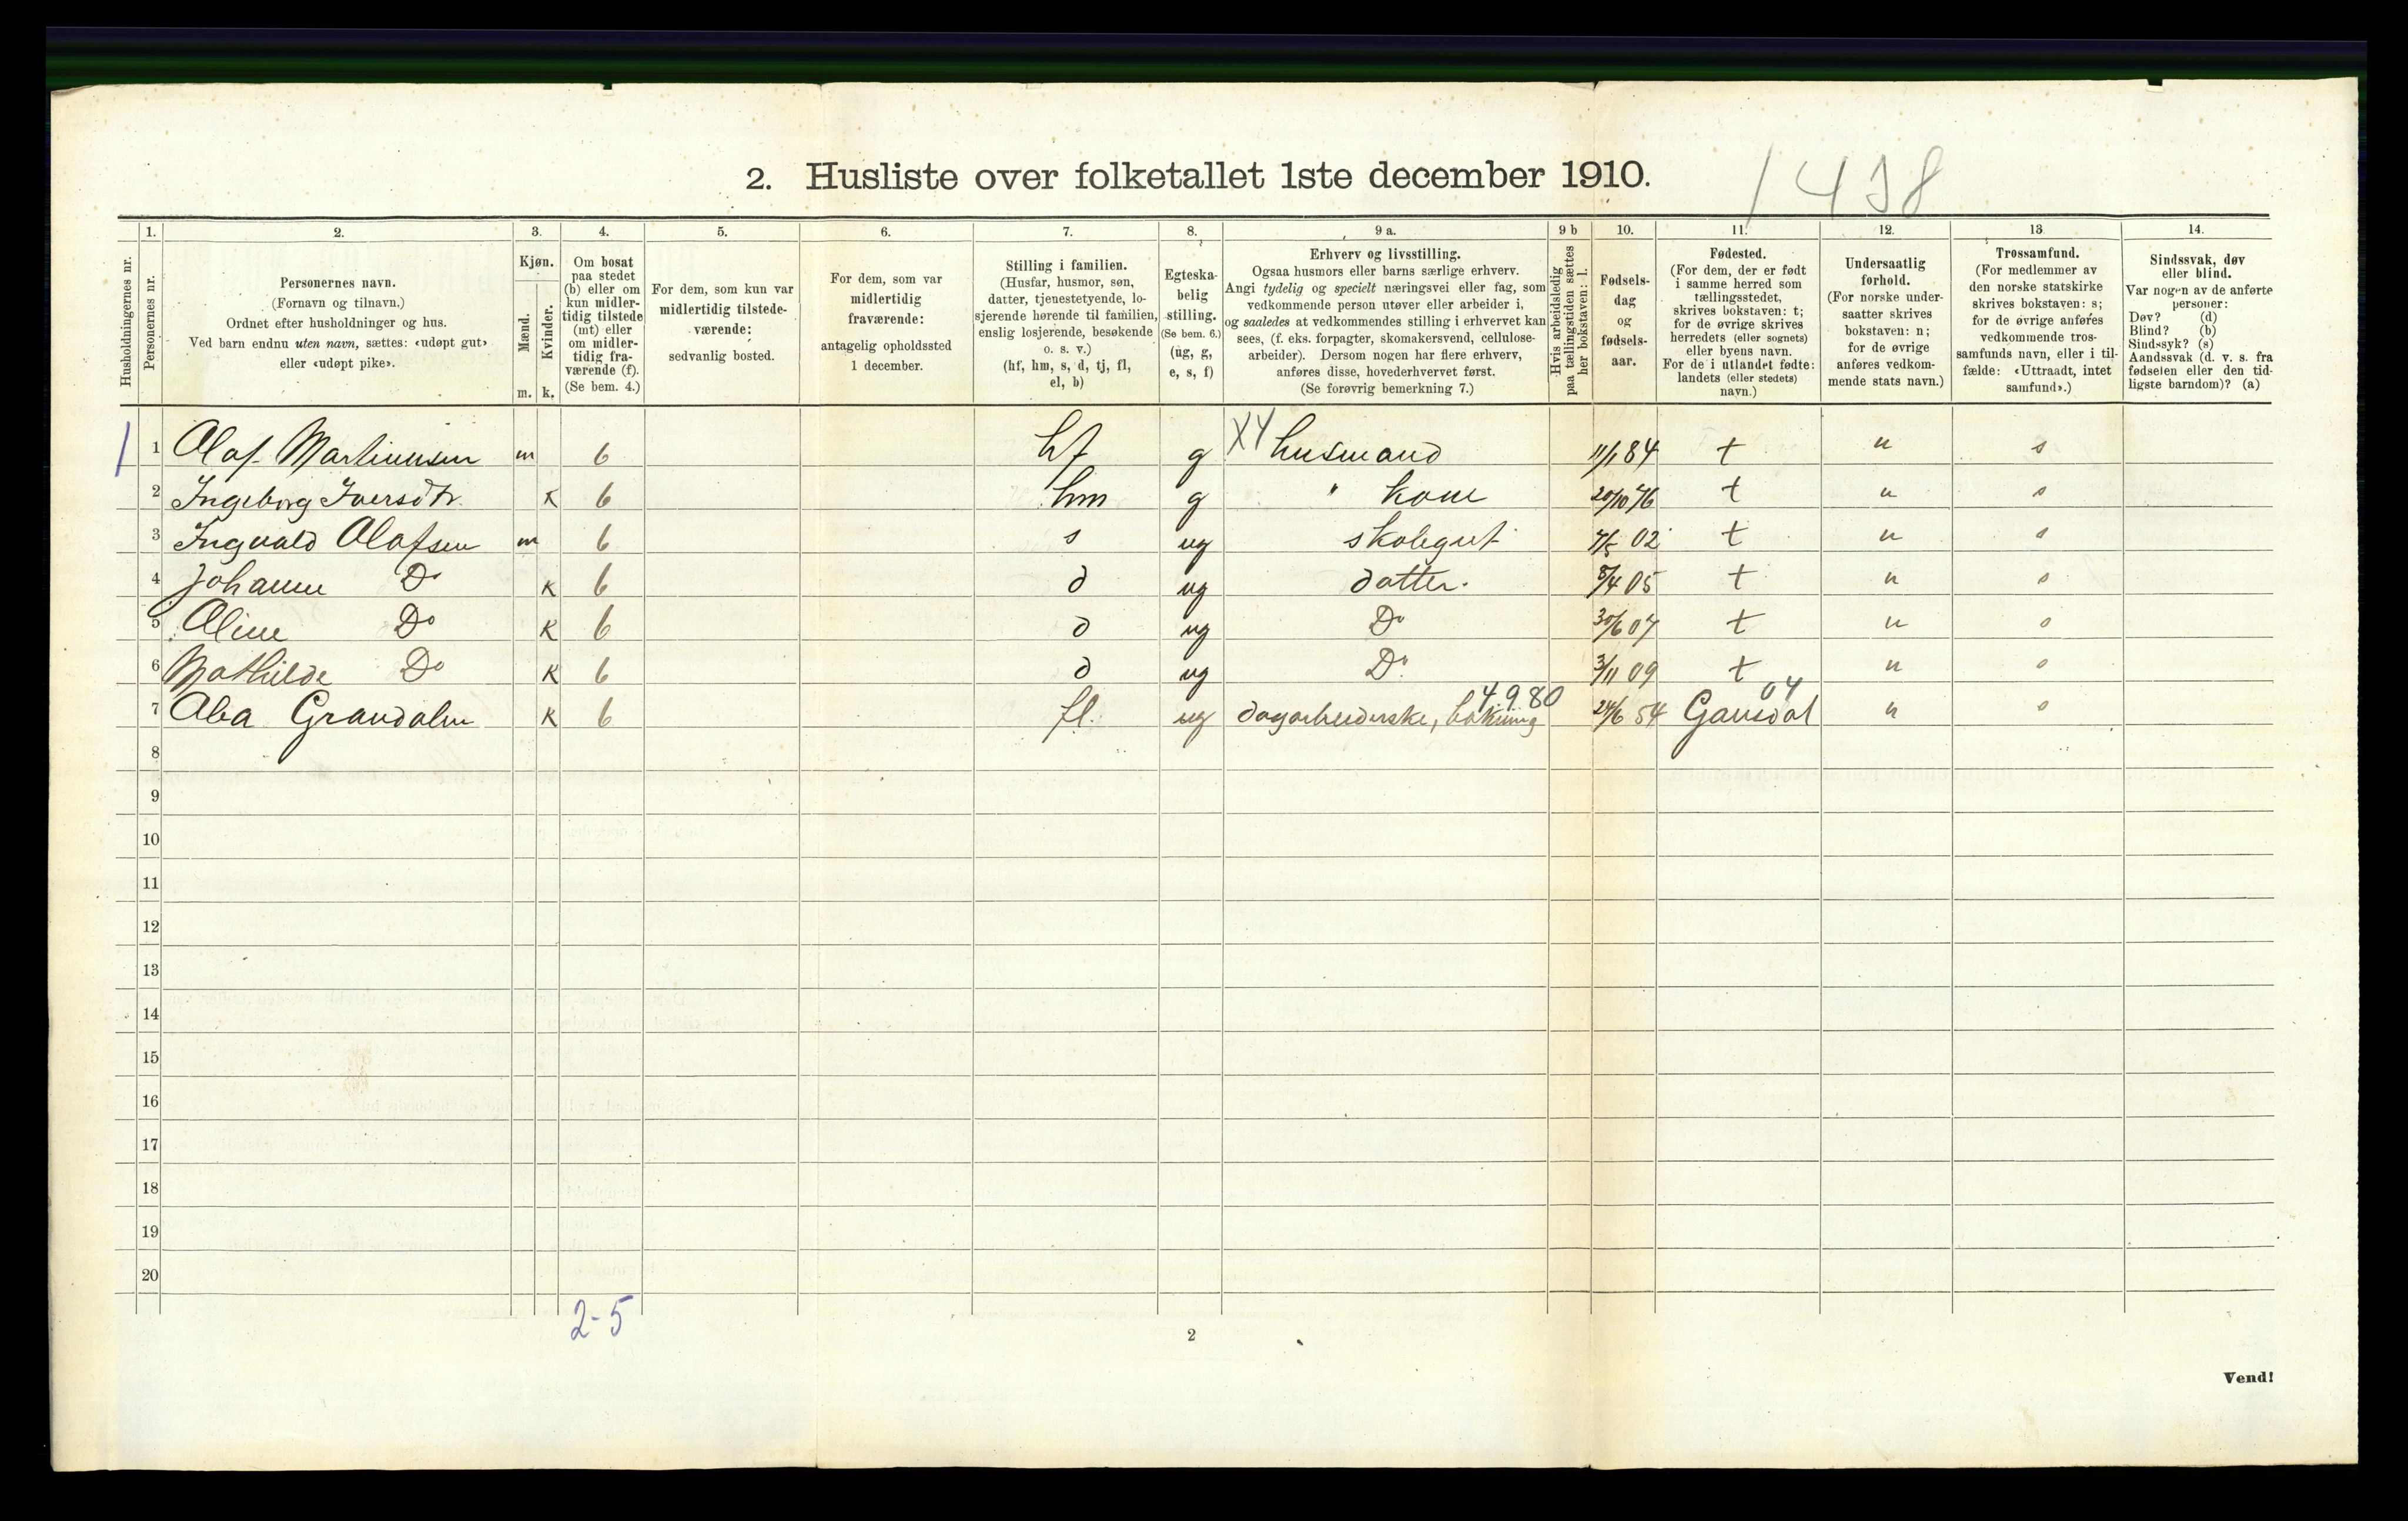 2. Husliste over folketallet 1ste december 1910.
1438
Husholdningernes nr.
1. Personernes nr.
2. Personernes navn.
(Fornavn og tilnavn.)
Ordnet efter husholdninger og hus.
Ved barn endnu uten navn, sættes: «udøpt gut»
eller «udøpt pike».
3. Kjøn.
Mænd. m.
Kvinder. k.
4. Om bosat
paa stedet
(b) eller om
kun midler-
tidig tilstede
(mt) eller
om midler-
tidig fra-
værende (f).
(Se bem. 4.)
5. For dem, som kun var
midlertidig tilstede-
værende:
sedvanlig bosted.
6. For dem, som var
midlertidig
fraværende:
antagelig opholdssted
1 december.
7. Stilling i familien.
(Husfar, husmor, søn,
datter, tjenestetyende, lo-
sjerende hørende til familien,
enslig losjerende, besøkende
o. s. v.)
(hf, hm, s, d, tj, fl,
el, b)
8. Egteska-
belig
stilling.
(Se bem. 6.)
(ug, g,
e, s, f)
9 a. Erhverv og livsstilling.
Ogsaa husmors eller barns særlige erhverv.
Angi tydelig og specielt næringsvei eller fag, som
vedkommende person utøver eller arbeider i,
og saaledes at vedkommendes stilling i erhvervet kan
sees, (f. eks. forpagter, skomakersvend, cellulose-
arbeider). Dersom nogen har flere erhverv,
anføres disse, hovederhvervet først.
(Se forøvrig bemerkning 7.)
9 b Hvis arbeidsledig
paa tællingstiden sættes
her bokstaven: l.
10. Fødsels-
dag
og
fødsels-
aar.
11. Fødested.
(For dem, der er født
i samme herred som
tællingsstedet,
skrives bokstaven: t;
for de øvrige skrives
herredets (eller sognets)
eller byens navn.
For de i utlandet fødte:
landets (eller stedets)
navn.)
12. Undersaatlig
forhold.
(For norske under-
saatter skrives
bokstaven: n;
for de øvrige
anføres vedkom-
mende stats navn.)
13. Trossamfund.
(For medlemmer av
den norske statskirke
skrives bokstaven: s;
for de øvrige anføres
vedkommende tros-
samfunds navn, eller i til-
fælde: «Uttraadt, intet
samfund».)
14. Sindssvak, døv
eller blind.
Var nogen av de anførte
personer:
Døv? (d)
Blind? (b)
Sindssyk? (s)
Aandssvak (d. v. s. fra
fødselen eller den tid-
ligste barndom)? (a)
1 1 Olaf Martinnsen m b hf g X4 husmand 11/1 84 t n s
2 Ingeborg Iversdtr. k b hm g " kone 20/10 76 t n s
3 Ingvald Olafsen m b s ug skolegut 7/5 02 t n s
4 Johanne Do k b d ug datter. 8/4 05 t n s
5 Oline Do k b d ug Do 30/6 07 t n s
6 Mathilde Do k b d ug Do. 3/11 09 t n s
4980 04
7 k b fl. ug dagarbeiderske, 24/6 54 Gausdal n s
8
9
10
11
12
13
14
15
16
17
18
19
20
2-5
2
Vend!